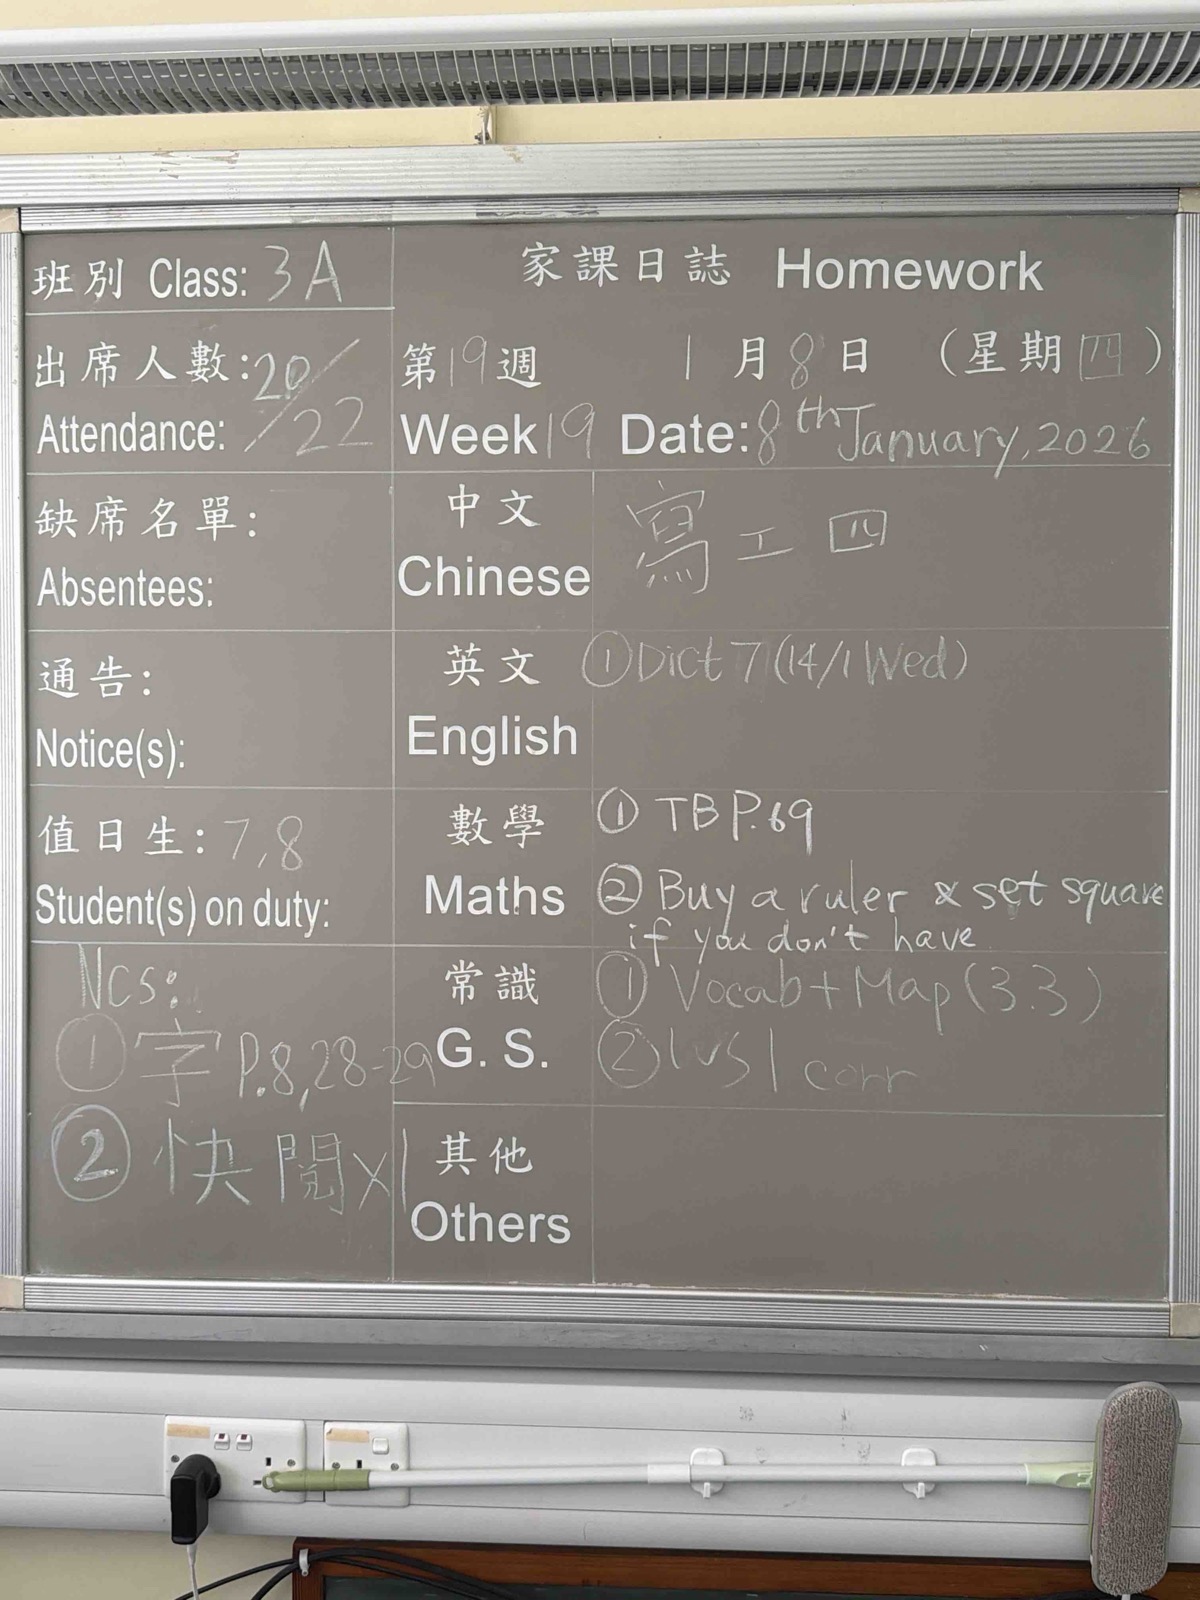 班別 Class: 3A
家課日誌 Homework
出席人數: 20/
Attendance: /22
第19週 1月8日 (星期四)
Week 19 Date: 8th January, 2026
缺席名單:
Absentees:
中文
Chinese
寫工四
通告:
Notice(s):
英文
English
①Dict 7 (14/1 Wed)
值日生: 7,8
Student(s) on duty:
數學
Maths
① TB P.69
② Buy a ruler & set square
if you don't have
Ncs:
① 字 P.8,28-29
② 快閱x1
常識
G. S.
① Vocab+Map (3.3)
② WS1 corr
其他
Others